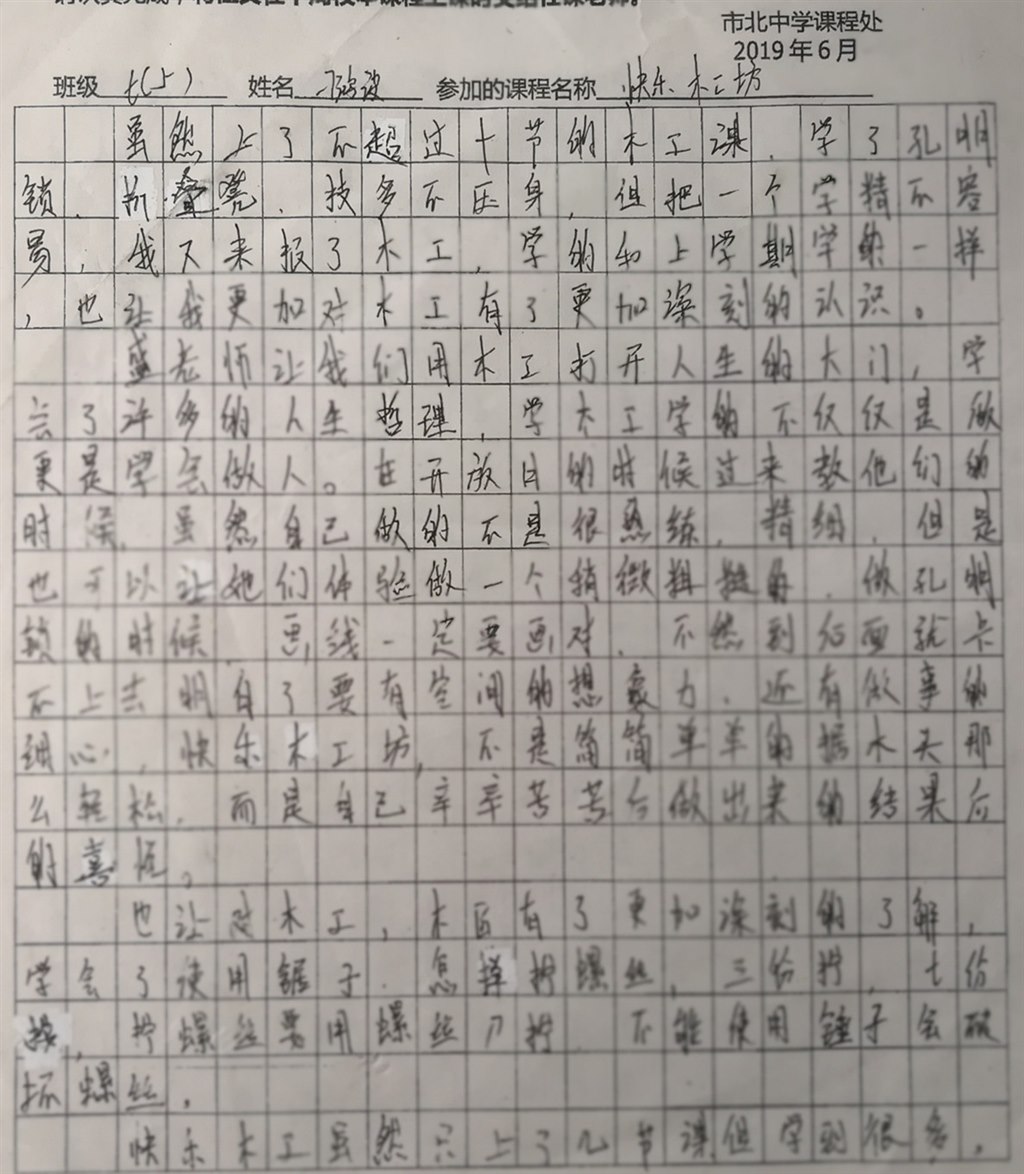 市北中学课程处
2019年6月
班级 七(5) 姓名 参加的课程名称 快乐木工坊
虽然上了不超过十节的木工课，学了孔明
锁，折叠凳，技多不压身，但把一个学精不容
易，我又来报了木工，学的和上学期学的一样
，也让我更加对木工有了更加深刻的认识。
盛老师让我们用木工打开人生的大门，学
会了许多的人生哲理，学木工学的不仅仅是做
更是学会做人。在开放日的时候过来教他们的
时候，虽然自己做的不是很熟练，精细，但是
也可以让她们体验做一个稍微粗糙的，做孔明
锁的时候，画线一定要画对，不然到后面就卡
不上去明白了要有空间的想象力，还有做事的
细心，快乐木工坊，不是简简单单的锯木头那
么轻松，而是自己辛辛苦苦后做出来的结果后
的喜悦。
也让对木工，木匠有了更加深刻的了解，
学会了使用锯子，怎样拧螺丝，三份拧，七份
按，拧螺丝要用螺丝刀拧，不能使用锤子会破
坏螺丝。
快乐木工虽然只上了几节课但学到很多。